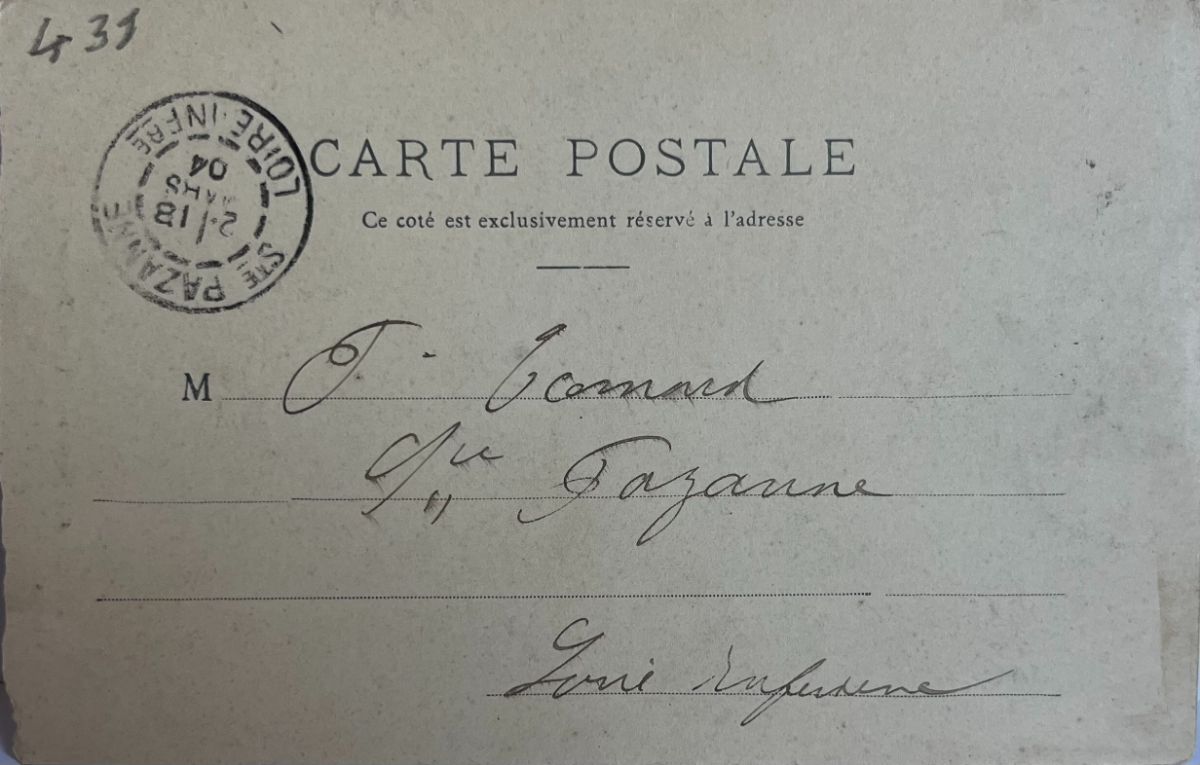 431
STE PAZANNE
LOIRE-INFRE
2 / 18
MARS
04
CARTE POSTALE
Ce coté est exclusivement réservé à l'adresse
M
Ste Pazanne
Loire Inferieure